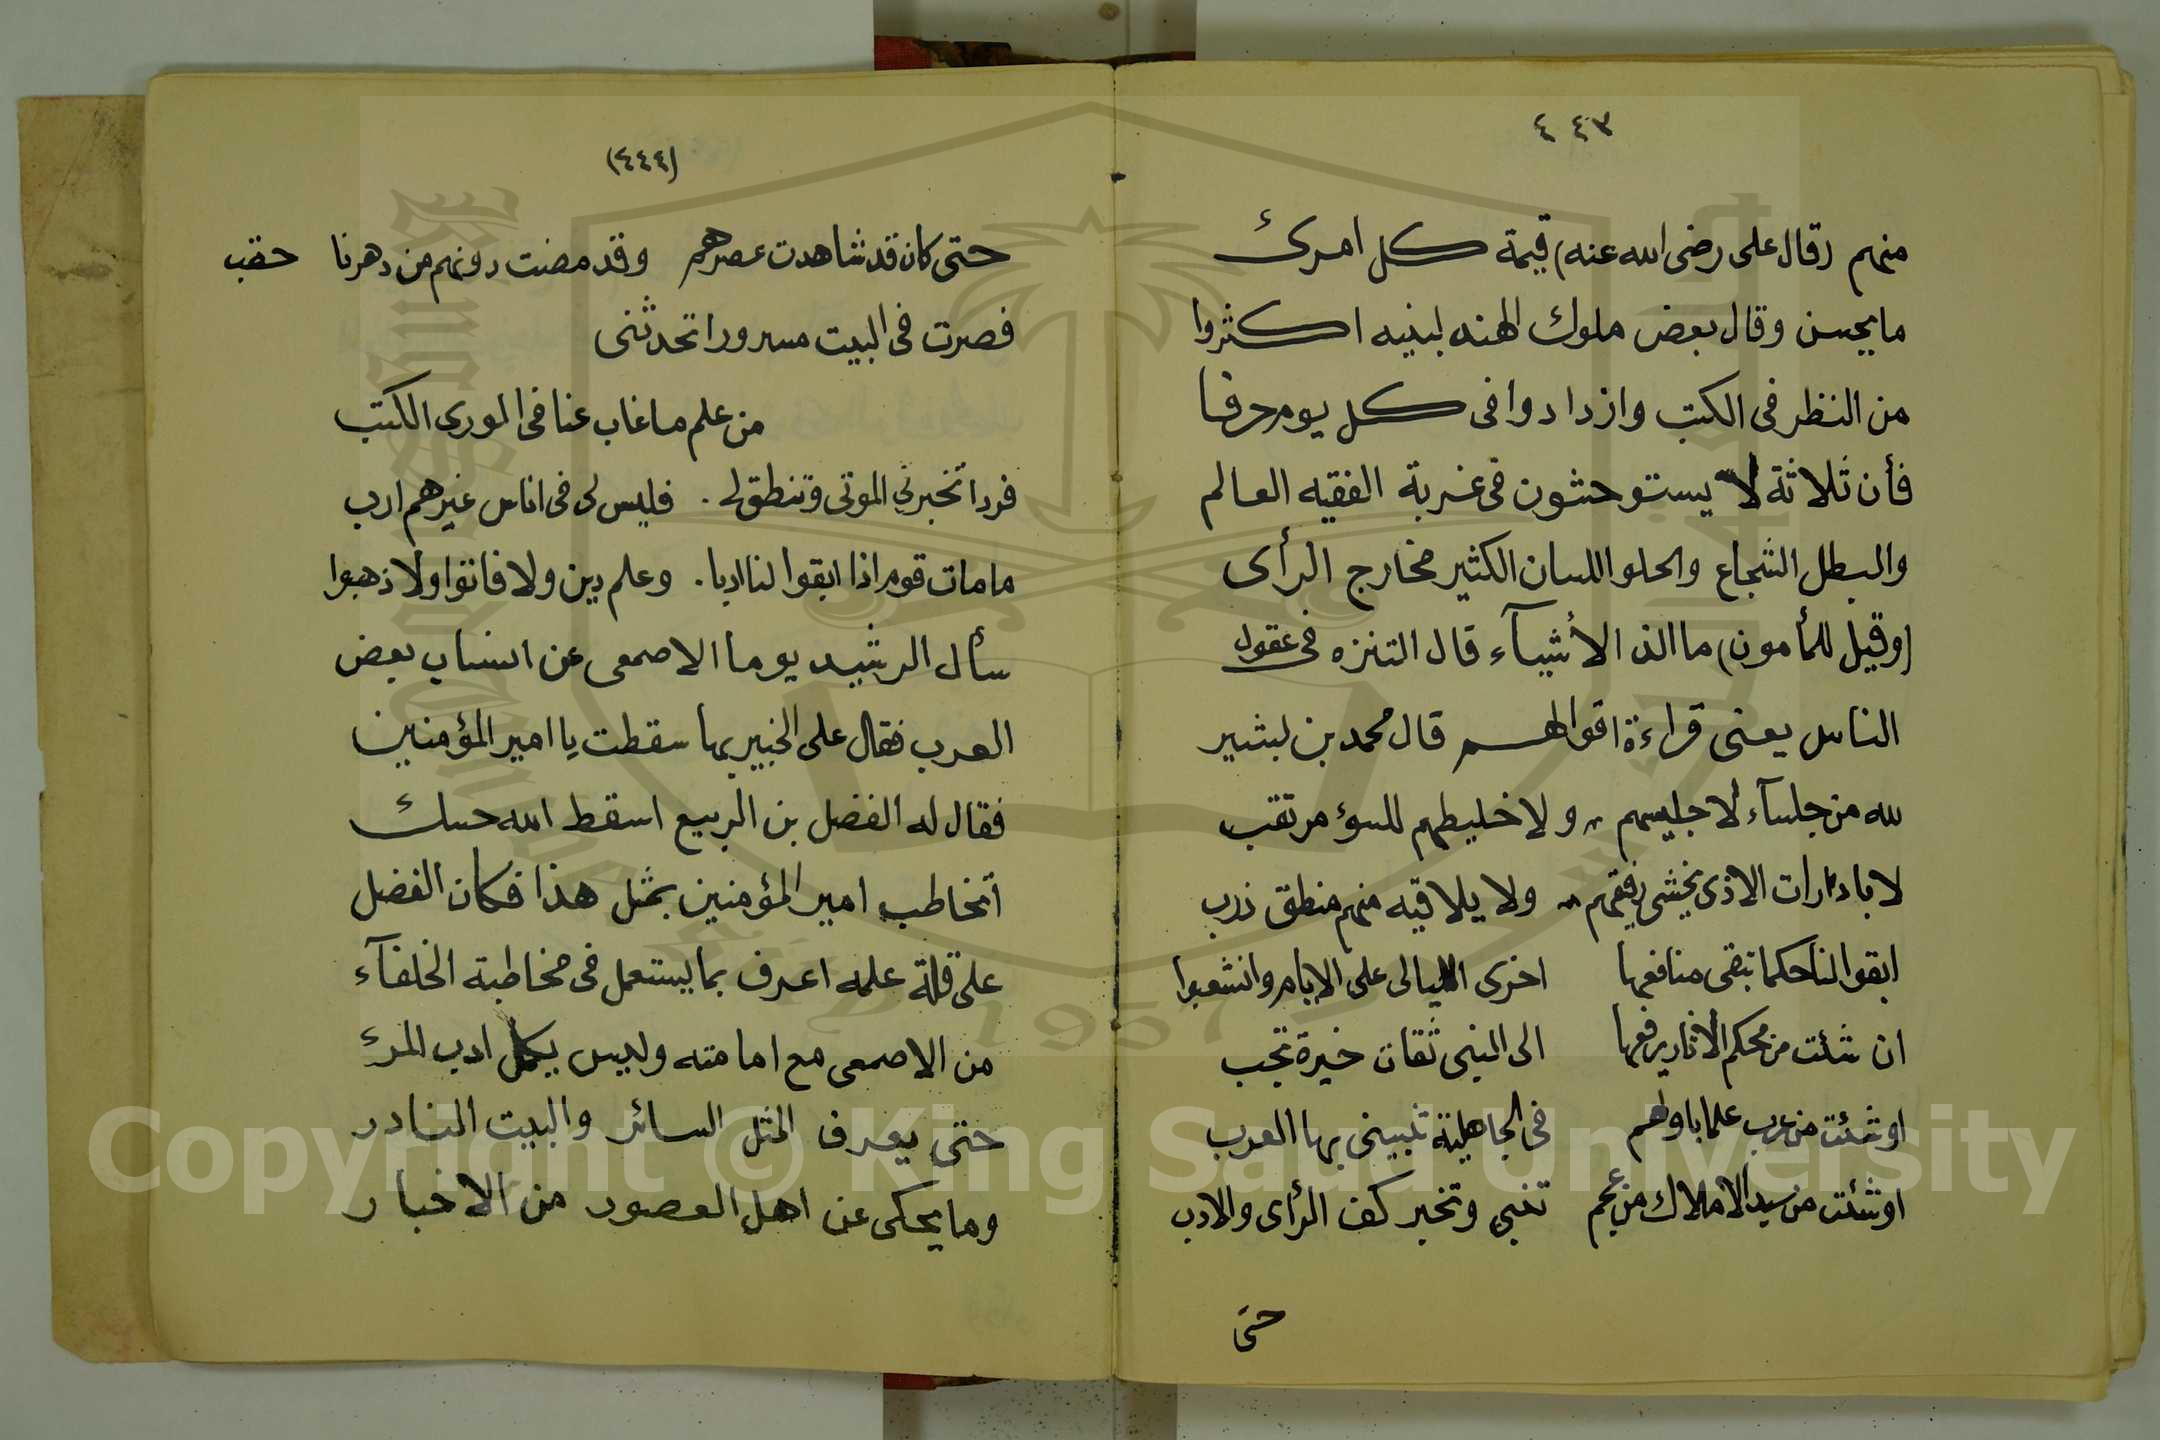 ٤٤٣
منهم (قال على رضى الله عنه) قيمة كل امرئ
ما يحسن وقال بعض ملوك الهند لبنيه اكثروا
من النظر فى الكتب وازدادوا فى كل يوم حرفا
فأن ثلاثة لا يستوحشون فى غربة الفقيه العالم
والبطل الشجاع والحلو اللسان الكثير مخارج الرأى
(وقيل للمأمون) ما الذ الأشيآء قال التنزه فى عقول
الناس يعنى قراءة اقوالهم قال محمد بن بشير
لله من جلسآء لا جليسهم ولا خليطهم للسوء مرتقب
لا بادرات الاذى يخشى رفيقهم ولا يلاقيه منهم منطق ذرب
ابقوا لنا حكما تبقى منافعها اخرى الليالى على الايام وانشعبوا
ان شئت من محكم الاثار يرفعها الى النبى ثقات خيرة نجب
او شئت من عرب علما باولهم فى الجاهلية تنبينى بها العرب
او شئت من سيد الاملاك من عجم تنبى وتخبر كف الرأى والادب
حتى
(٤٤٤)
حتى كان قد شاهدت عصرهم وقد مضت دونهم من دهرنا حقب
فصرت فى البيت مسرورا تحدثنى
من علم ما غاب عنا فى الورى الكتب
فردا تخبرنى الموتى وتنطق لى . فليس لى فى اناس غيرهم ارب
ما مات قوم اذا ابقوا لنا ادبا . وعلم دين ولا فاتوا ولا ذهبوا
سأل الرشيد يوما الاصمعى عن انساب بعض
العرب فقال على الخبير بها سقطت يا امير المؤمنين
فقال له الفضل بن الربيع اسقط الله حسك
اتخاطب امير المؤمنين بمثل هذا فكان الفضل
على قلة علمه اعرف بما يستعمل فى مخاطبة الخلفآء
من الاصمعى مع امامته وليس يكمل ادب المرء
حتى يعرف المثل السائر والبيت النادر
وما يحكى عن اهل العصور من الاخبار
Copyright © King Saud University
1957